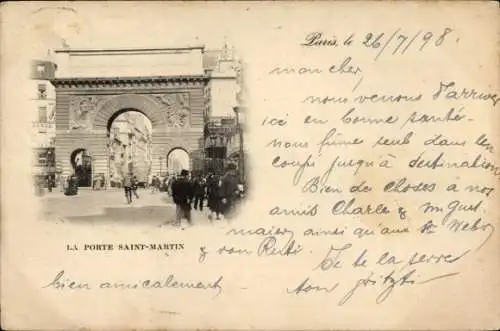 Paris, le 26/7/98.
mon cher,
nous venons d'arriver
ici en bonne santé.
nous fûme seul dans le
coupé jusqu'à destination
Bien des choses à nos
amis Charle &
maier ainsi qu'aux
& ton Petit.
Je te la serre
ton
bien amicalement
LA PORTE SAINT-MARTIN